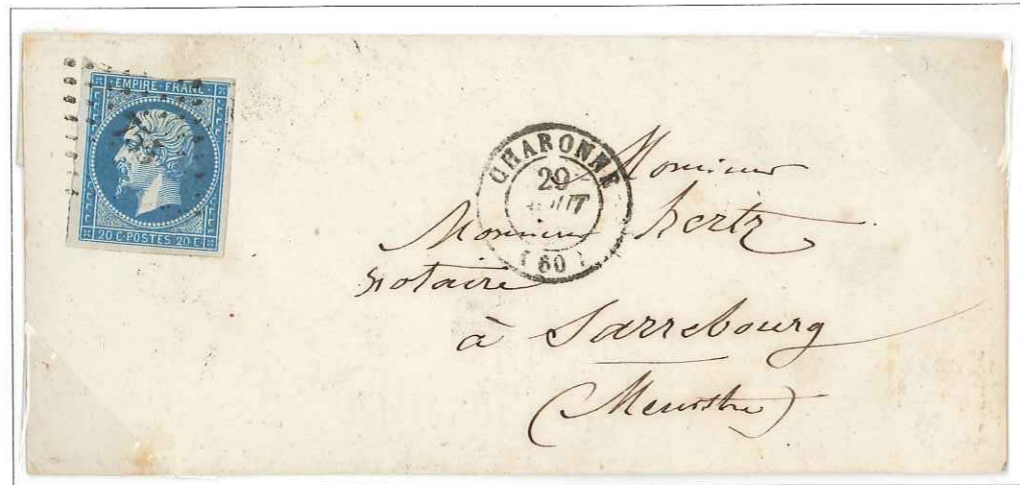 EMPIRE FRANC
20 C·POSTES 20 C
CHARONNE
29
AOUT
(60)
Monsieur
Monsieur hertz
notaire
à Sarrebourg
(Meurthe)